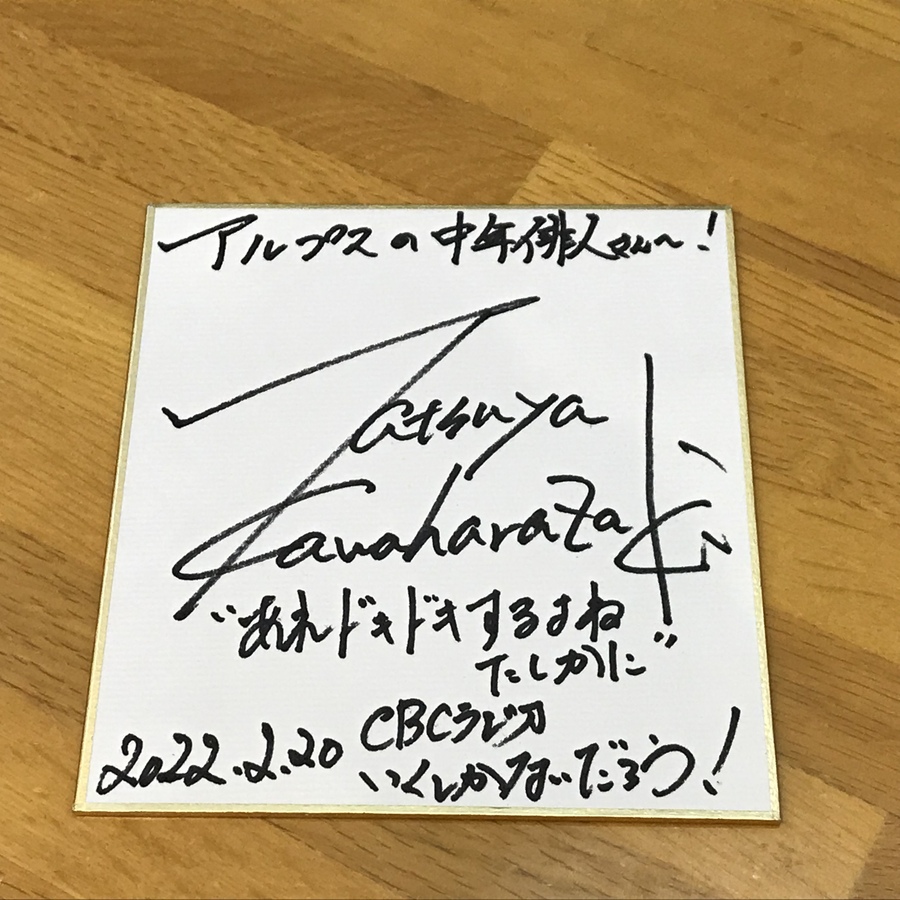 アルプスの中年俳人さん〜!
Tatsuya
Kawaharazaki
“あれドキドキするよね
たしかに”
2022.2.20
CBCラジオ
いくしかないだろう!